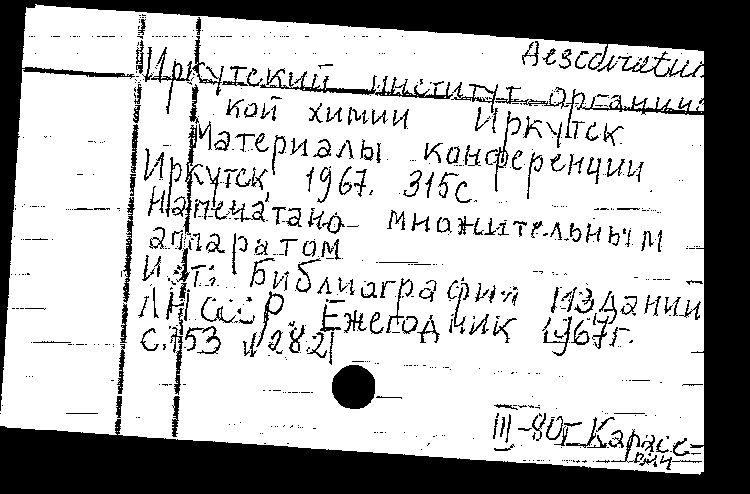 Иркутский институт органичес
кой химии Иркутск
Материалы конференции
Иркутск, 1967. 315с.
Напечатано множительным
аппаратом
Ист: Библиография изданий
АН СССР. Ежегодник 1967г.
с.153 №2821
III-80г Карасе=
вич